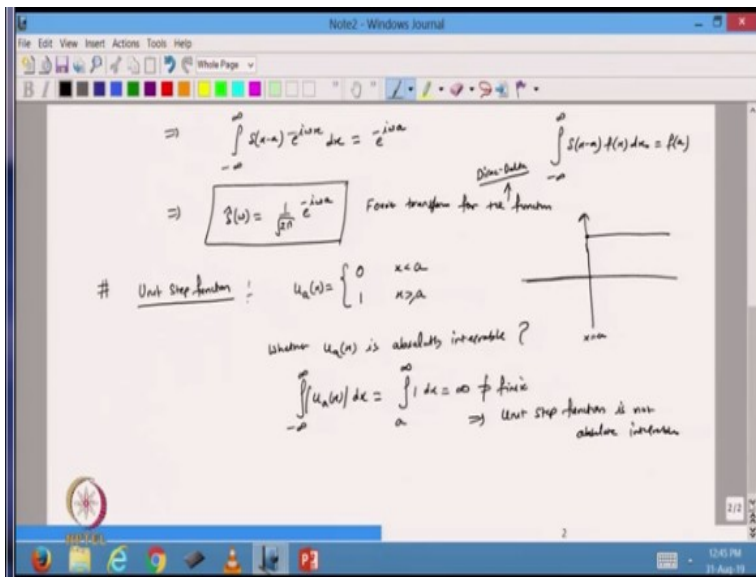 Note2 - Windows Journal
File Edit View Insert Actions Tools Help
Whole Page
B I
⇒ ∫_{-∞}^{∞} δ(x-a) e^{-iωx} dx = e^{-iωa}
∫_{-∞}^{∞} δ(x-a) f(x) dx = f(a)
Dirac-Delta
⇒ δ̂(ω) = 1/√2π e^{-iωa} Fourier transform for the function
# Unit Step function : u_a(x) = { 0 x<a
1 x≥a
x=a
Whether u_a(x) is absolutely integrable ?
∫_{-∞}^{∞} |u_a(x)| dx = ∫_{a}^{∞} 1 dx = ∞ ≠ finite
⇒ Unit step function is not
absolute integrable
NPTEL
2/2
2
12:45 PM
31-Aug-19